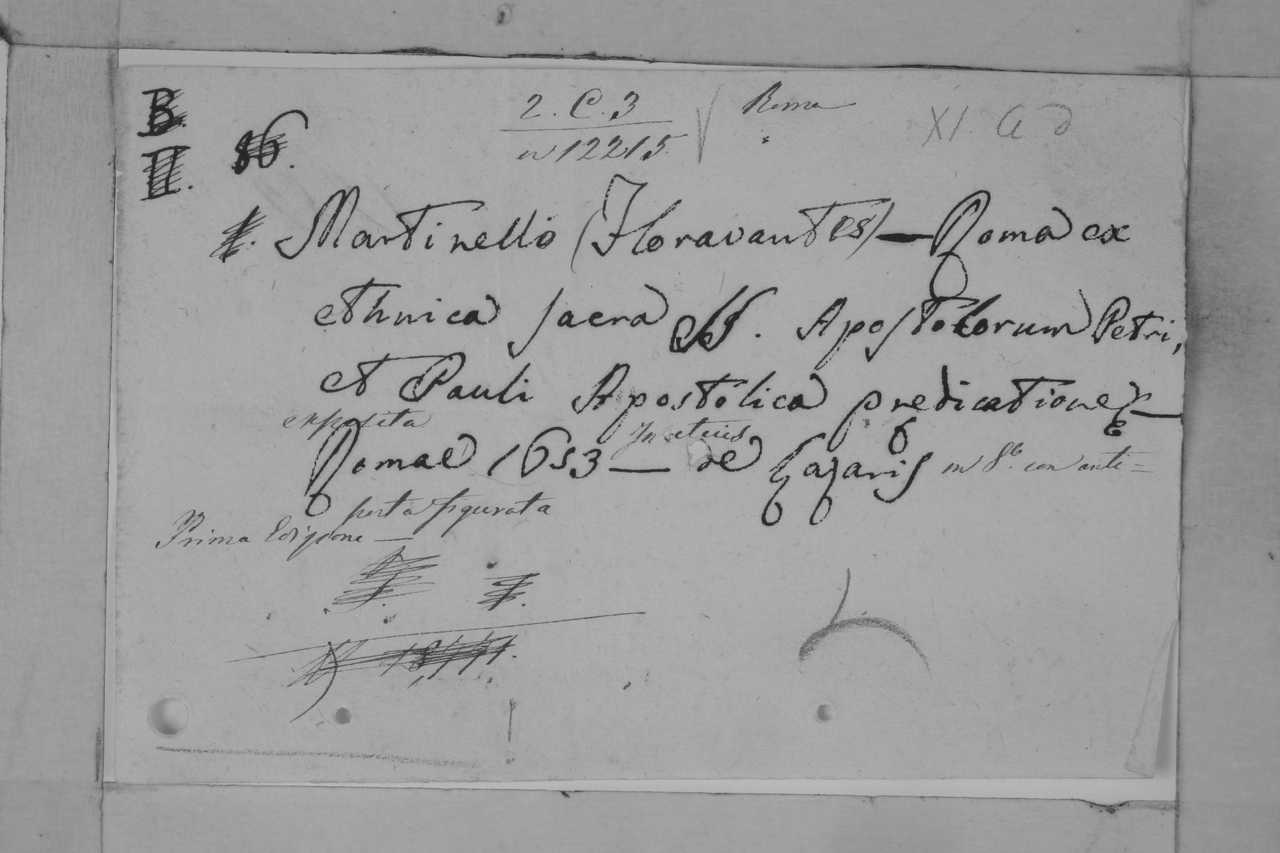 B.
II. 86.
2. C. 3
n 12215.
Roma
XI. G d
I. Martinello (Floravantes) — Roma ex
ethnica sacra SS. Apostolorum Petri,
et Pauli Apostolica predicatione —
exposita
Romae 1653 — de Lazaris in 8.° con anti=
porta figurata
Prima Edizione —